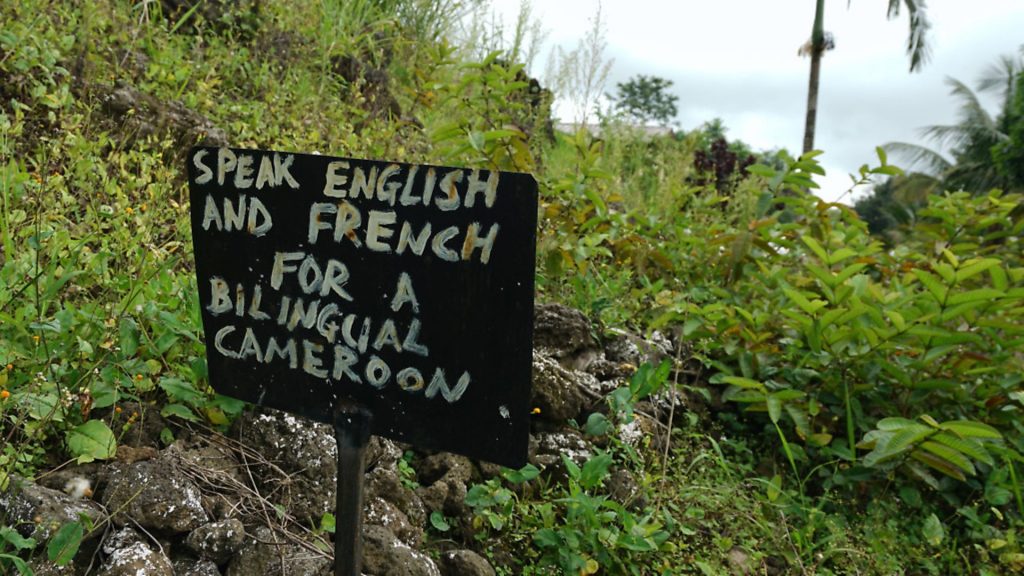 SPEAK ENGLISH
AND FRENCH
FOR A
BILINGUAL
CAMEROON